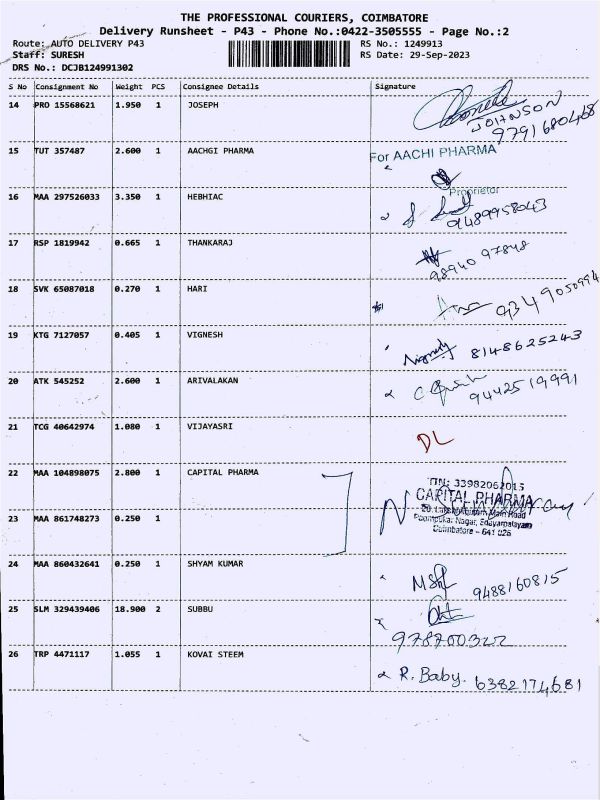 THE PROFESSIONAL COURIERS, COIMBATORE
Delivery Runsheet - P43 - Phone No.:0422-3505555 - Page No.:2
Route: AUTO DELIVERY P43 RS No.: 1249913
Staff: SURESH RS Date: 29-Sep-2023
DRS No.: DCJB124991302
S No Consignment No Weight PCS Consignee Details Signature
14 PRO 15568621 1.950 1 JOSEPH
JOHNSON
9791680468
15 TUT 357487 2.600 1 AACHGI PHARMA
For AACHI PHARMA
Proprietor
16 MAA 297526033 3.350 1 HEBHIAC
9489958043
17 RSP 1819942 0.665 1 THANKARAJ
98940 97848
18 SVK 65087018 0.270 1 HARI
9349050994
19 KTG 7127057 0.405 1 VIGNESH
8148625243
20 ATK 545252 2.600 1 ARIVALAKAN
9442519991
21 TCG 40642974 1.080 1 VIJAYASRI
DL
22 MAA 104898075 2.800 1 CAPITAL PHARMA
TIN: 33982062015
CAPITAL PHARMA
Main Road
Nagar, Edayarpalayam
Coimbatore - 641 025
23 MAA 861748273 0.250 1
24 MAA 860432641 0.250 1 SHYAM KUMAR
9488160815
25 SLM 329439406 18.900 2 SUBBU
978700322
26 TRP 4471117 1.055 1 KOVAI STEEM
R. Baby. 6382174681